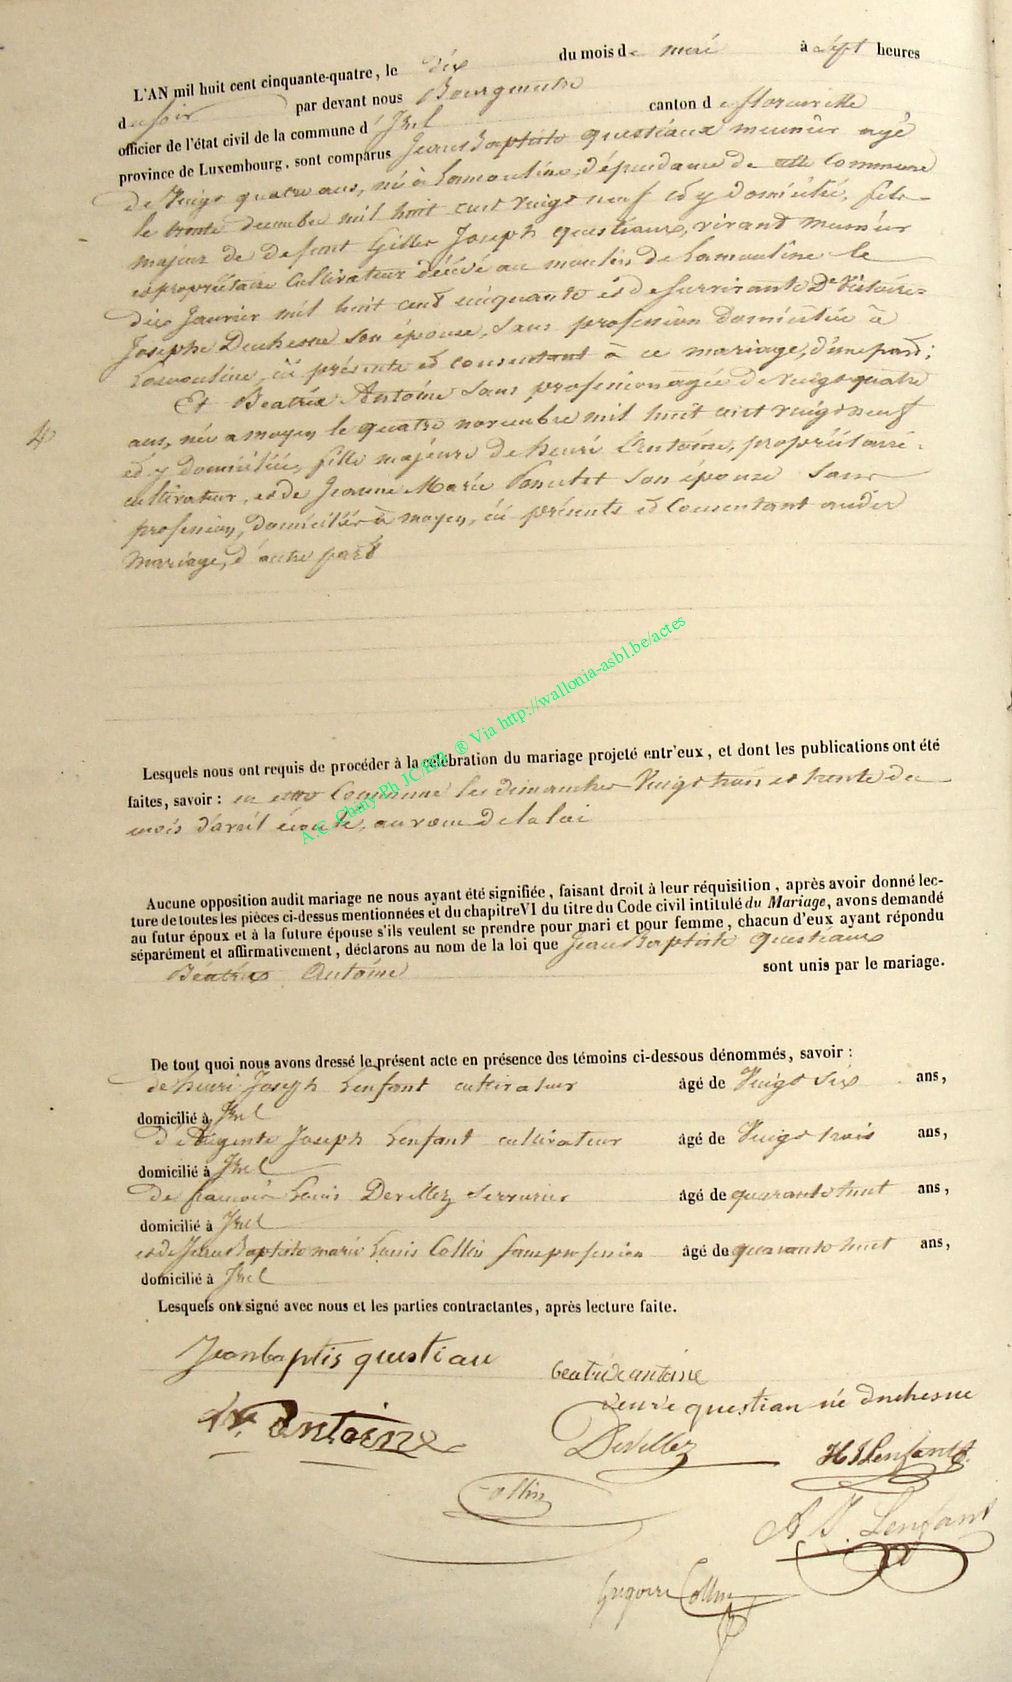 L'AN mil huit cent cinquante-quatre, le dix du mois de mai à sept heures
du soir par devant nous Bourgmestre
officier de l'état civil de la commune d'Izel canton de florenville
province de Luxembourg, sont comparus Jean Baptiste questiaux meunier agé
de vingt quatre ans, né à Lamouline, dépendance de cette commune
le trente decembre mil huit cent vingt neuf et y domicilié, fils
majeur de defunt Gilles Joseph questiaux, vivant meunier
et propriétaire cultivateur décédé au moulin de Lamouline le
dix Janvier mil huit cent cinquante et de survivante De Victoire
Josephe Duchesne son épouse, sans profession domiciliée à
Lamouline, ici présente et consentant à ce mariage, d'une part;
Et Beatrix Antoine sans profession agée de vingt quatre
ans, née a moyen le quatre novembre mil huit cent vingt neuf
et y domiciliée, fille majeure de henri Antoine, propriétaire
cultivateur, et de Jeanne Marie son épouse sans
profession, domiciliés à moyen, ici présents et consentant audit
mariage, d'autre part
4
Lesquels nous ont requis de procéder à la célébration du mariage projeté entr'eux, et dont les publications ont été
faites, savoir : en cette Commune les dimanches vingt trois et trente du
mois d'avril écoulé, au vœu de la loi
A.C. Chiny Ph JC/HR ® Via http://wallonia-asbl.be/actes
Aucune opposition audit mariage ne nous ayant été signifiée, faisant droit à leur réquisition, après avoir donné lec-
ture de toutes les pièces ci-dessus mentionnées et du chapitre VI du titre du Code civil intitulé du Mariage, avons demandé
au futur époux et à la future épouse s'ils veulent se prendre pour mari et pour femme, chacun d'eux ayant répondu
séparément et affirmativement, déclarons au nom de la loi que Jean Baptiste questiaux
Béatrix Antoine sont unis par le mariage.
De tout quoi nous avons dressé le présent acte en présence des témoins ci-dessous dénommés, savoir :
de henri Joseph Lenfant cultivateur âgé de vingt six ans,
domicilié à Izel
Joseph Lenfant cultivateur âgé de vingt trois ans,
domicilié à Izel
de francois Louis Devillez serrurier âgé de quarante huit ans,
domicilié à Izel
et de Jean Baptiste marie Louis Collin sans profession âgé de quarante huit ans,
domicilié à Izel
Lesquels ont signé avec nous et les parties contractantes, après lecture faite.
Jean baptis questiau
beatrix antoine
veuve questiau né duchesne
Antoine
Devillez
H J Lenfant
Collin
A. J. Lenfant
Grégoire Collin